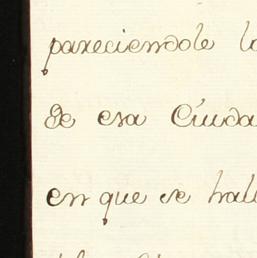 pareciendole l
de esa Ciuda
en que se hall